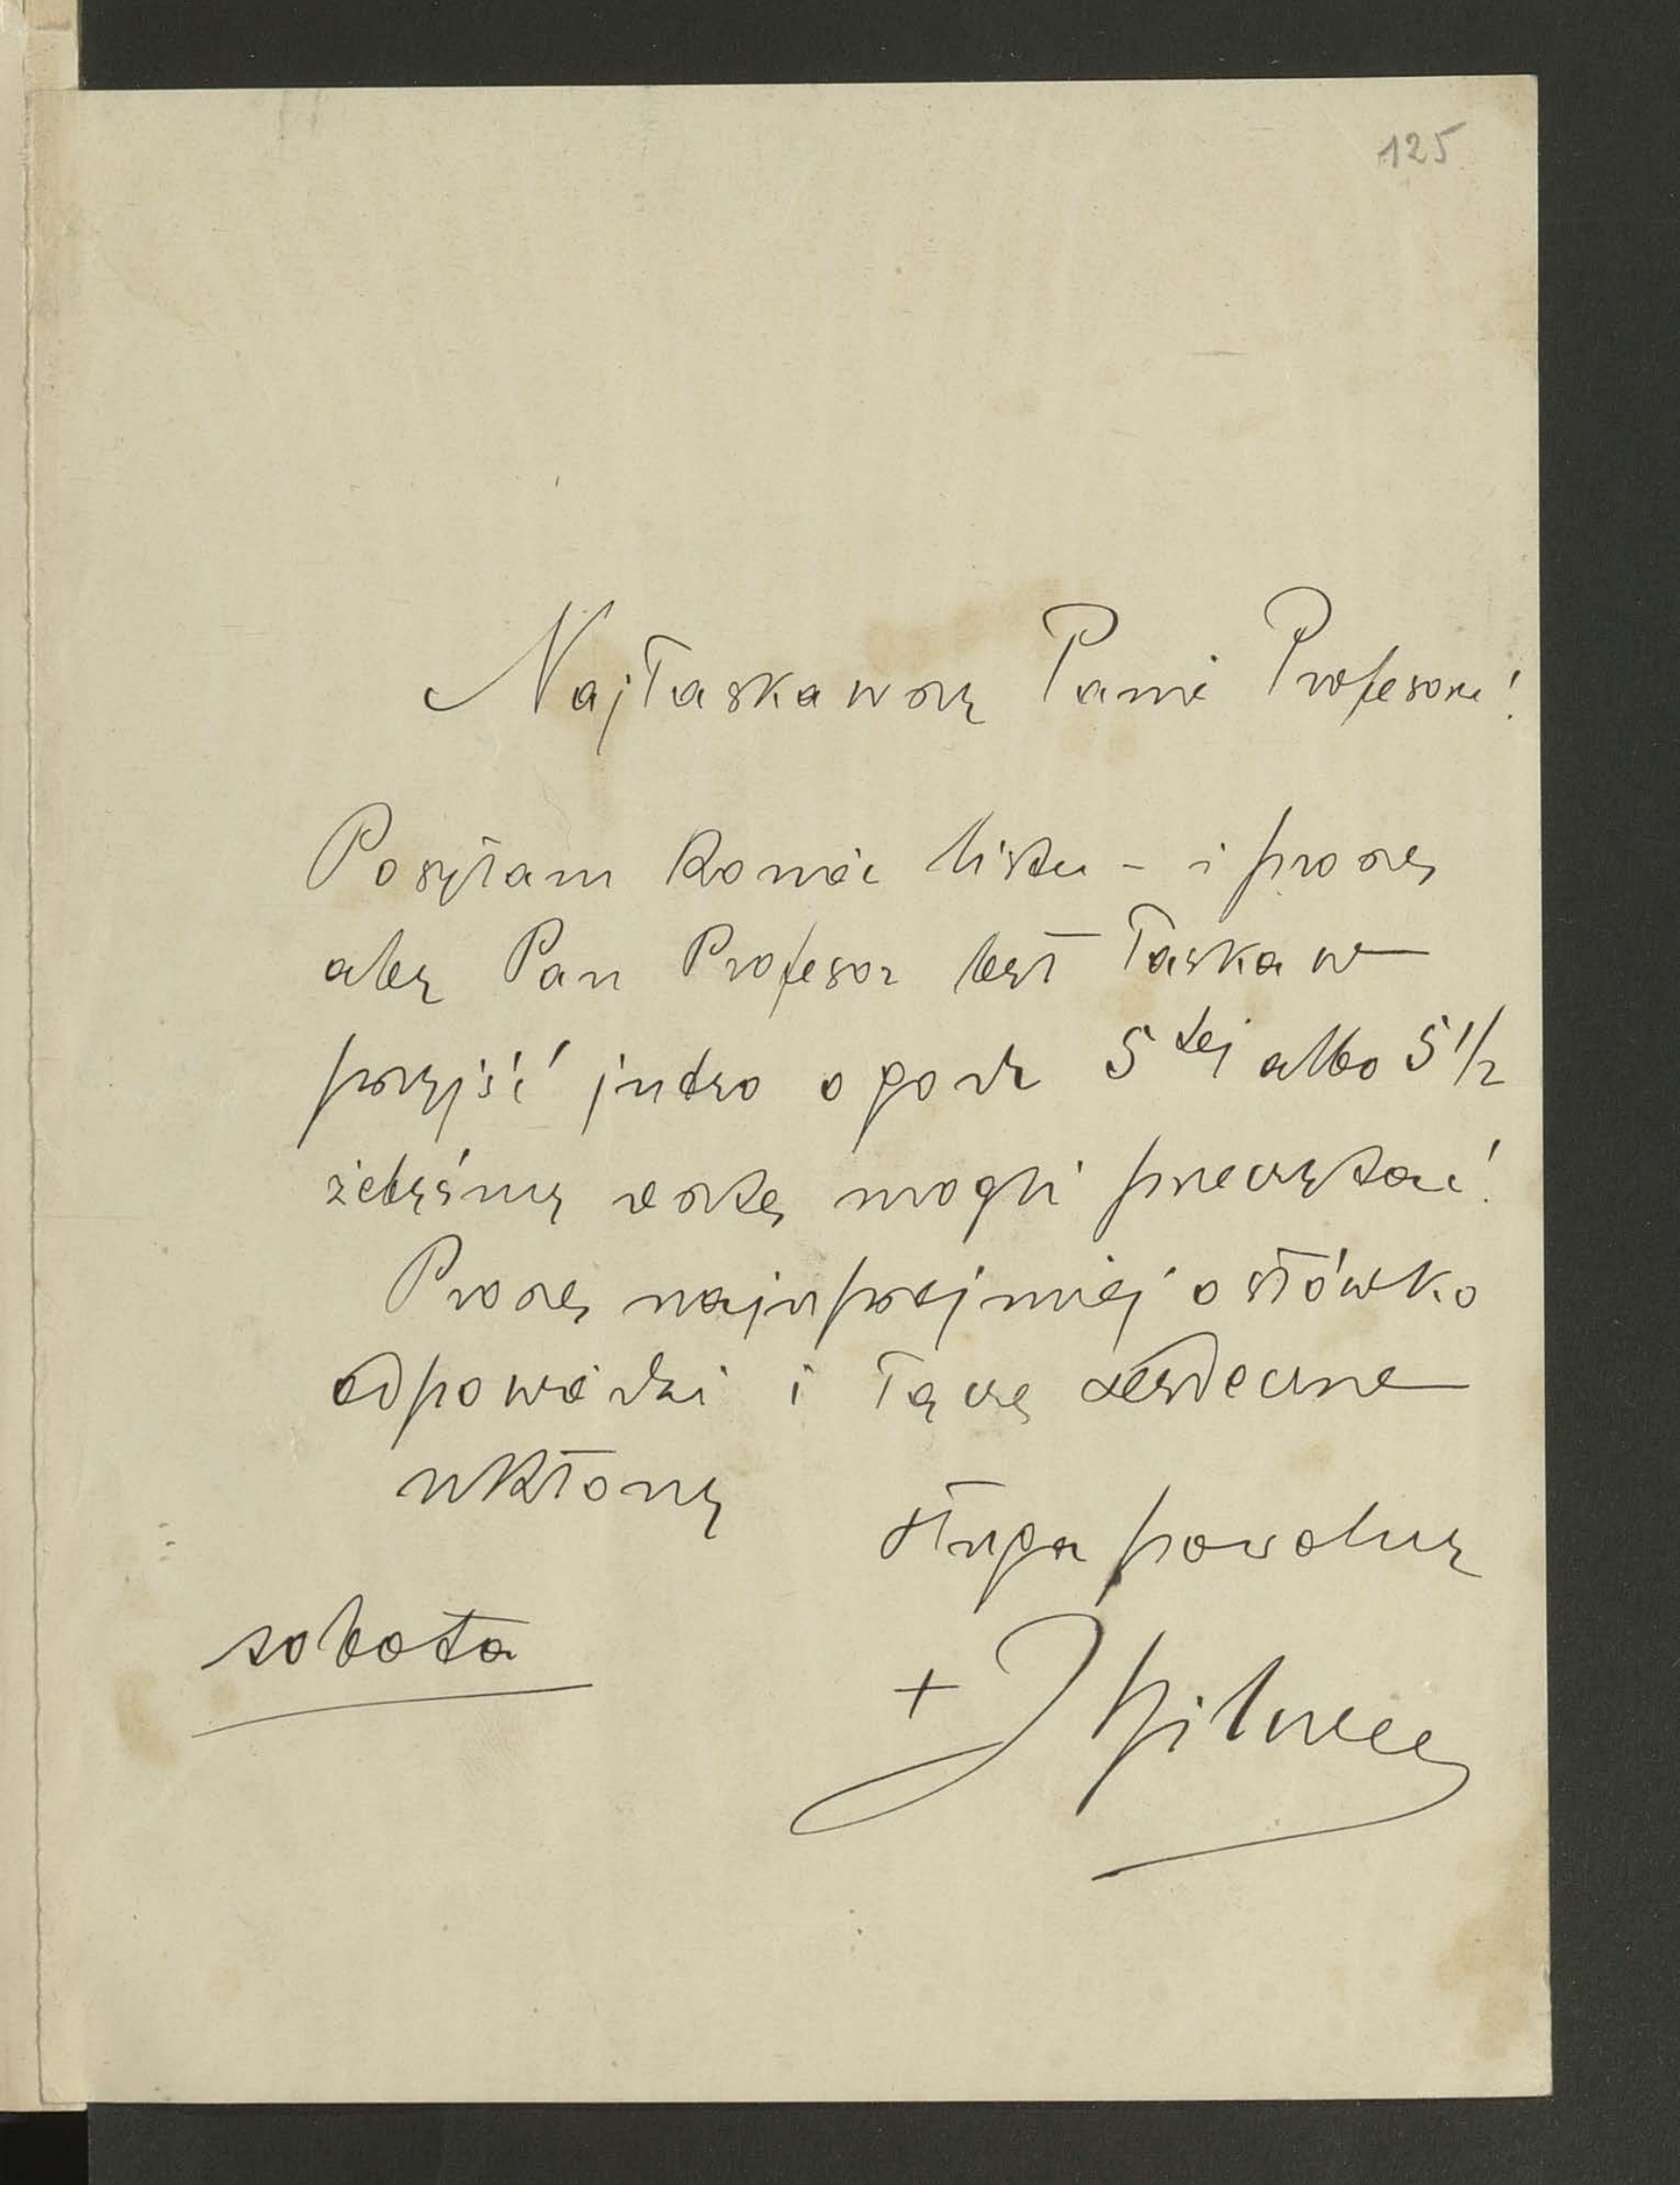 125
Najłaskawszy Panie Profesorze!
Posyłam koniec listu - i proszę
aby Pan Profesor był łaskaw
przyjść jutro o godz 5tej albo 5 1/2
żebyśmy resztę mogli przeczytać!
Proszę najuprzejmiej o słówko
odpowiedzi i łączę serdeczne
ukłony
sługa powolny
sobota
+ J